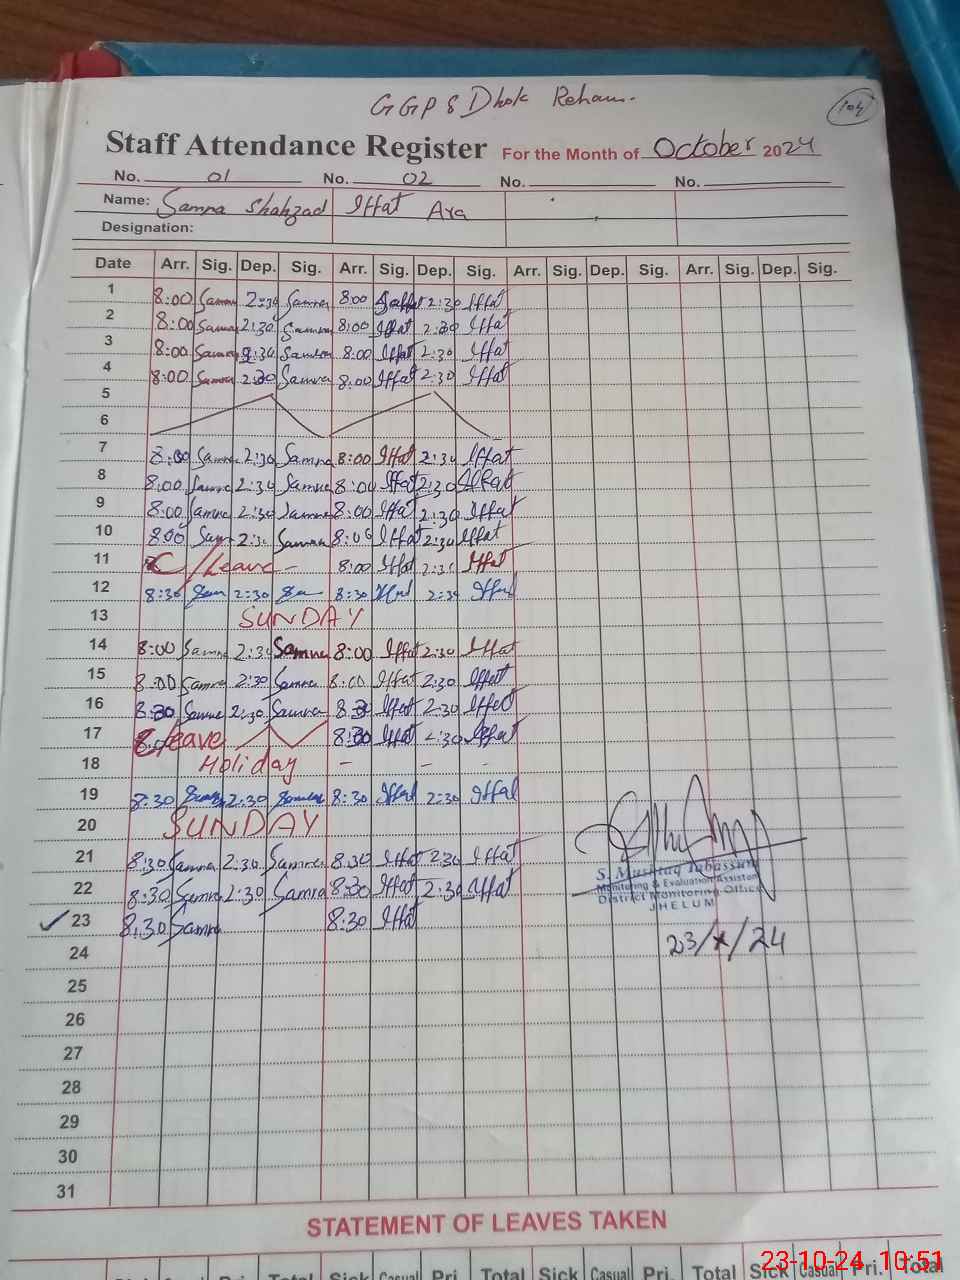 GGPS Dhok Reham.
104
Staff Attendance Register For the Month of October 2024
No. 01 No. 02 No. No.
Name: Samra Shahzad Iffat Ara
Designation:
Date Arr. Sig. Dep. Sig. Arr. Sig. Dep. Sig. Arr. Sig. Dep. Sig. Arr. Sig. Dep. Sig.
1 8:00 Samra 2:30 Samra 8:00 Iffat 2:30 Iffat
2 8:00 Samra 2:30 Samra 8:00 Iffat 2:30 Iffat
3 8:00 Samra 2:30 Samra 8:00 Iffat 2:30 Iffat
4 8:00 Samra 2:30 Samra 8:00 Iffat 2:30 Iffat
5
6
7 8:00 Samra 2:30 Samra 8:00 Iffat 2:30 Iffat
8 8:00 Samra 2:30 Samra 8:00 Iffat 2:30 Iffat
9 8:00 Samra 2:30 Samra 8:00 Iffat 2:30 Iffat
10 8:00 Sam 2:30 Samra 8:00 Iffat 2:30 Iffat
11 C/Leave - 8:00 Iffat 2:30 Iffat
12 8:30 Sam 2:30 Sam 8:30 Iffat 2:30 Iffat
13 SUNDAY
14 8:00 Samra 2:30 Samra 8:00 Iffat 2:30 Iffat
15 8:00 Samra 2:30 Samra 8:00 Iffat 2:30 Iffat
16 8:30 Samra 2:30 Samra 8:30 Iffat 2:30 Iffat
17 C/Leave 8:30 Iffat 2:30 Iffat
18 Holiday - - -
19 8:30 Samra 2:30 Samra 8:30 Iffat 2:30 Iffat
20 SUNDAY
21 8:30 Samra 2:30 Samra 8:30 Iffat 2:30 Iffat
22 8:30 Samra 2:30 Samra 8:30 Iffat 2:30 Iffat
S. Mushtaq Tabassum
Monitoring & Evaluation Assistant
District Monitoring Office
JHELUM
23 8:30 Samra 8:30 Iffat
23/X/24
24
25
26
27
28
29
30
31
STATEMENT OF LEAVES TAKEN
Sick Casual Pri. Total Sick Casual Pri. Total Sick Casual Pri. Total Sick Casual Pri. Total
23-10-24 10:51